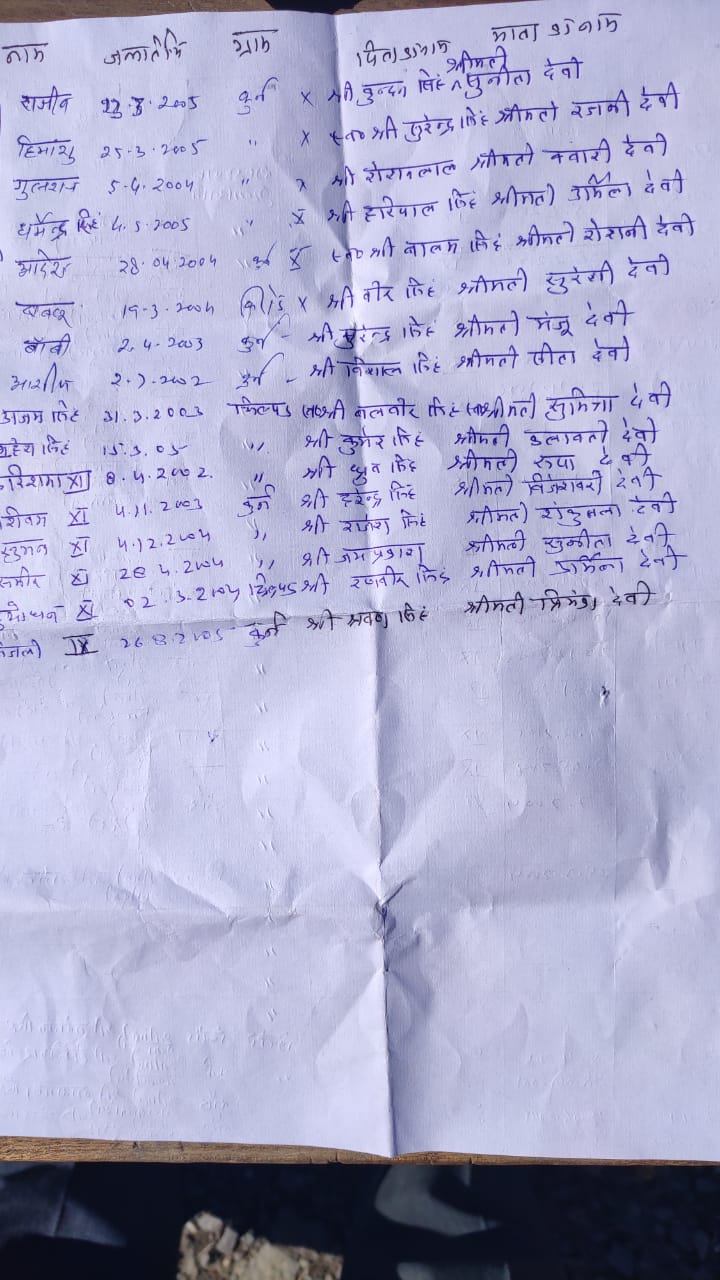 नाम जन्मतिथि ग्राम पिता का नाम माता का नाम
राजीव 3.2005 कुर्न x श्री कुन्दन सिंह श्रीमती सुनीता देवी
हिमांशु 25-3.2005 " x स्व० श्री सुरेन्द्र सिंह श्रीमती रजनी देवी
गुलशन 5.4.2004 " x श्री रोशनलाल श्रीमती क्वारी देवी
धर्मेन्द्र सिंह 4.5.2005 " X श्री हरिपाल सिंह श्रीमती उर्मिला देवी
आदेश 28.04.2004 कुर्न X स्व० श्री बालम सिंह श्रीमती रोशनी देवी
19-3.2004 x श्री वीर सिंह श्रीमती सुरेशी देवी
बॉबी 2.4.2003 कुर्न - श्री सुरेन्द्र सिंह श्रीमती मंजू देवी
आशीष 2.7.2002 कुर्न - श्री विशाल सिंह श्रीमती सीता देवी
अजय सिंह 31.3.2003 स्व० श्री बलवीर सिंह स्व० श्रीमती सुमित्रा देवी
सिंह 15.3.05 " श्री कुमेर सिंह श्रीमती देवी
करिशमा XII 8.4.2002. " श्री ध्रुव सिंह श्रीमती रूपा देवी
शिवम XI 4.11.2003 कुर्न श्री हरेन्द्र सिंह श्रीमती विजेश्वरी देवी
सुमन XI 4.12.2004 " श्री राजेश सिंह श्रीमती शकुन्तला देवी
समीर XI 28 4.2004 " श्री जयप्रकाश श्रीमती सुनीता देवी
XI 02.3.2004 श्री रणवीर सिंह श्रीमती उर्मिला देवी
अंजली IX 26.8.2005 कुर्न श्री श्रवण सिंह श्रीमती देवी